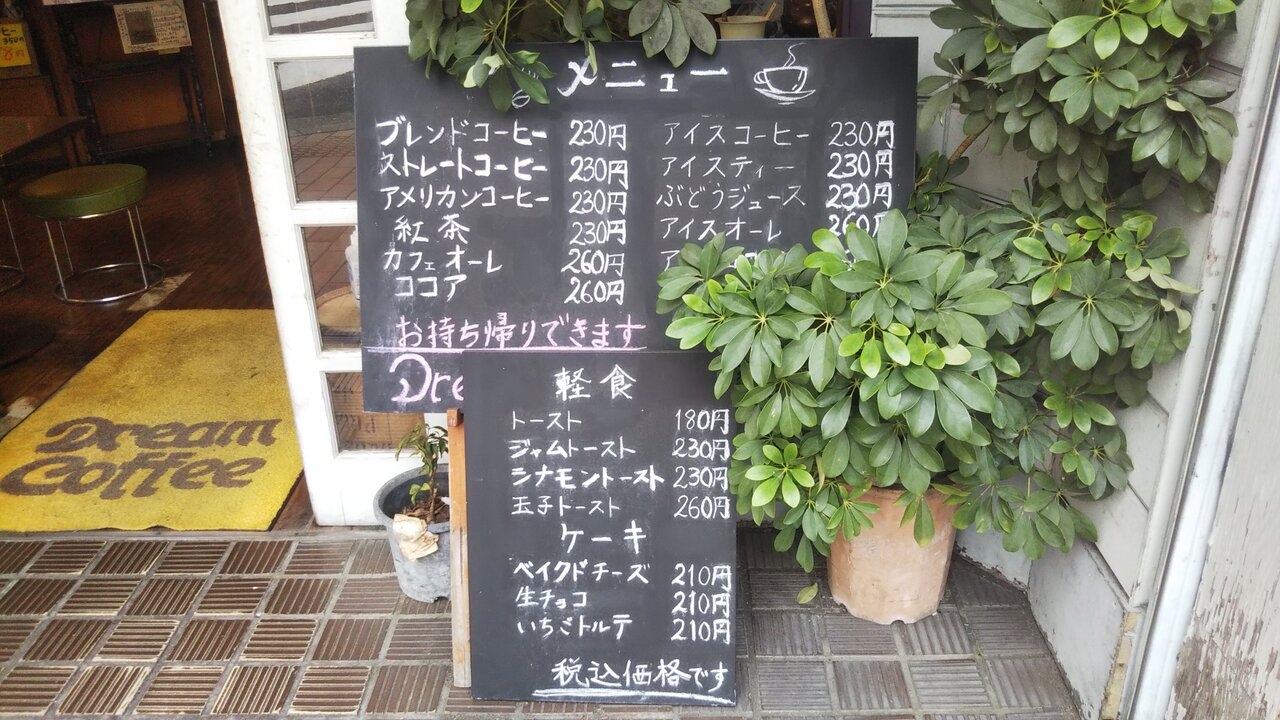 メニュー
ブレンドコーヒー 230円
ストレートコーヒー 230円
アメリカンコーヒー 230円
紅茶 230円
カフェオーレ 260円
ココア 260円
アイスコーヒー 230円
アイスティー 230円
ぶどうジュース 230円
アイスオーレ 260円
お持ち帰りできます
軽食
トースト 180円
ジャムトースト 230円
シナモントースト 230円
玉子トースト 260円
ケーキ
ベイクドチーズ 210円
生チョコ 210円
いちごトルテ 210円
税込価格です
Dream
Coffee